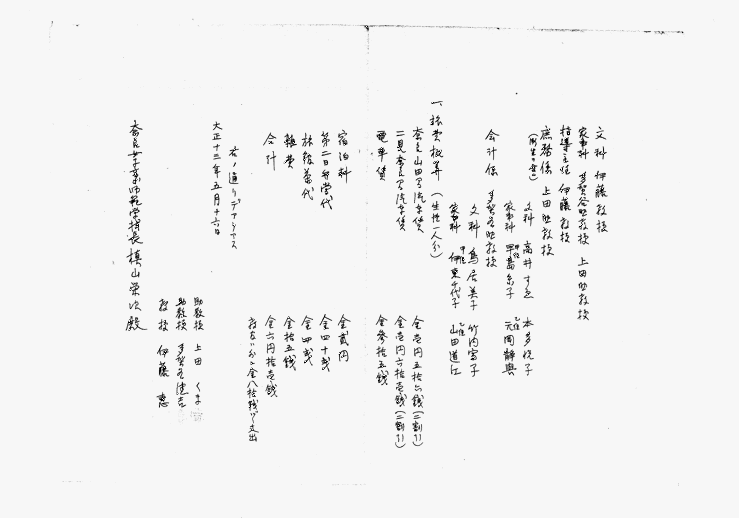 文科 伊藤教授
家事科 多賀谷助教授 上田助教授
指導主任 伊藤教授
庶務係 上田助教授
文科 高井すゑ 本多悦子
家事科 早島糸子 元岡静興
会計係 多賀谷助教授
文科 鳥居美子 竹内宮子
家事科 伊東千代子 山田道江
一、旅費概算(生徒一人分)
奈良山田間汽車賃 金壱円五拾六銭(二割引)
二見奈良間汽車賃 金壱円六拾壱銭(二割引)
電車賃 金参拾五銭
宿泊料 金貳円
第二日弁当代 金四十銭
旅後薬代 金四銭
雑費 金拾五銭
合計 金六円拾壱銭
金八拾銭 支出
右ノ通リデアリマス
大正十三年五月十六日
助教授 上田 くま
助教授 多賀谷健吉
教授 伊藤 恵
奈良女子高等師範学校長 槙山栄次殿